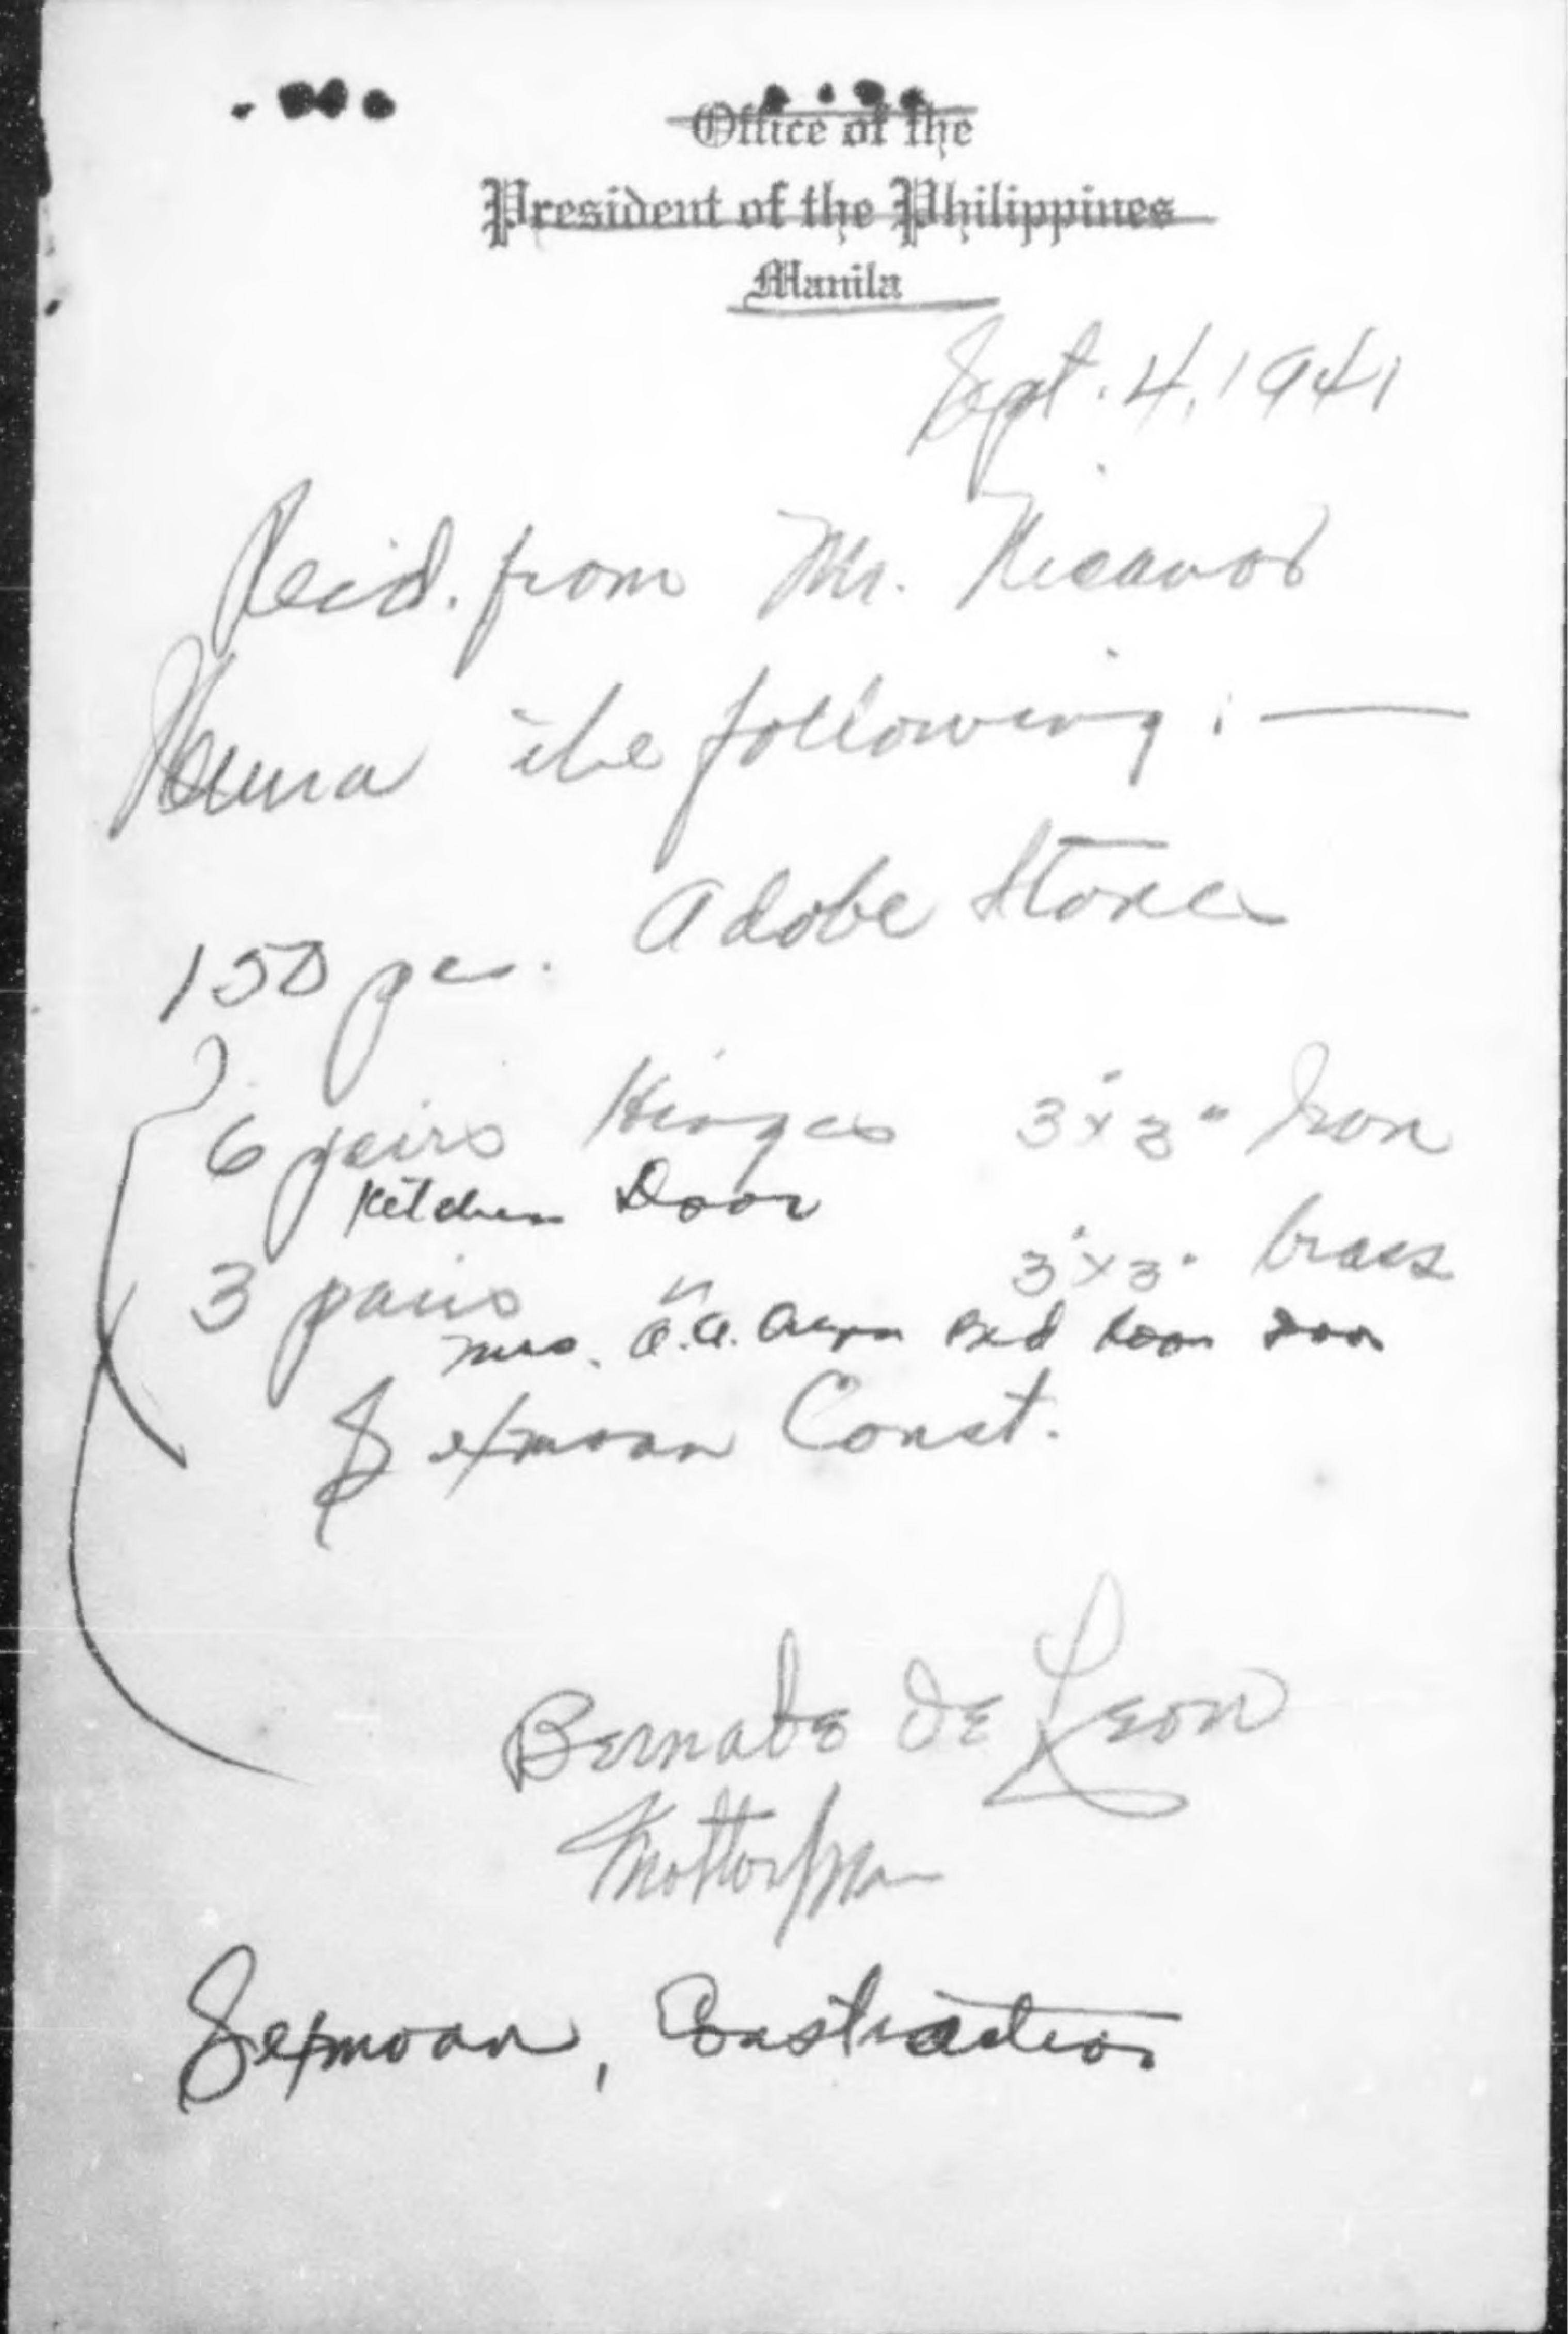 Office of the
President of the Philippines
Manila
Sept. 4, 1941
Recd. from Mr. Nicanor
the following : —
150 pcs. Adobe Stones
6 pairs Hinges 3"x3" Iron
Kitchen Door
3 pairs " 3"x3" brass
Mrs. A.A. Bed Room Door
Sexmoan Const.
Bernabe De Leon
Sexmoan, Construction